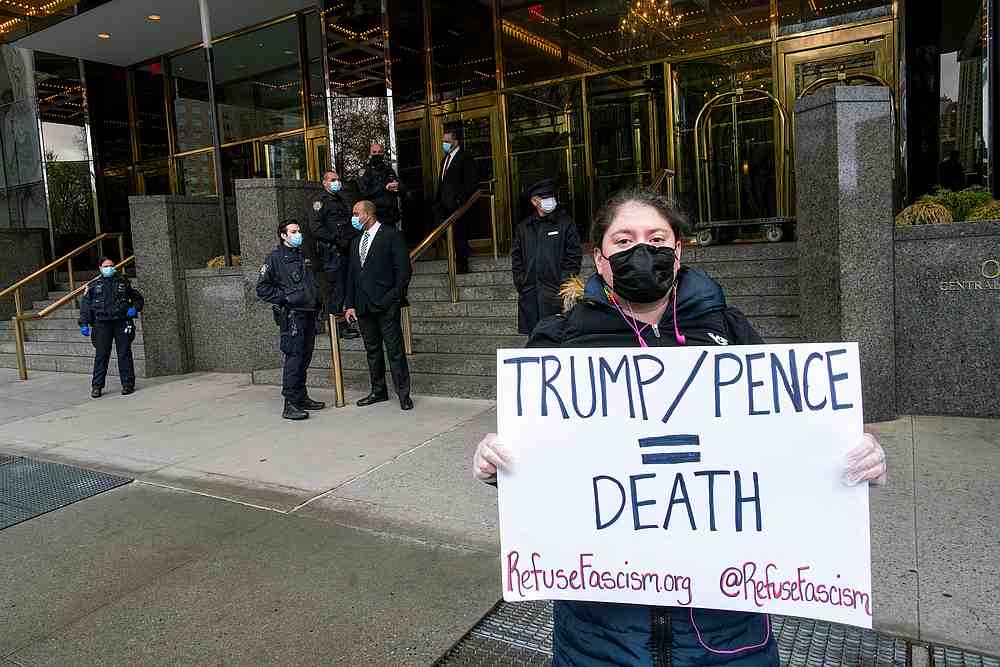 TRUMP/PENCE
=
DEATH
RefuseFascism.org @RefuseFascism
CENTRAL